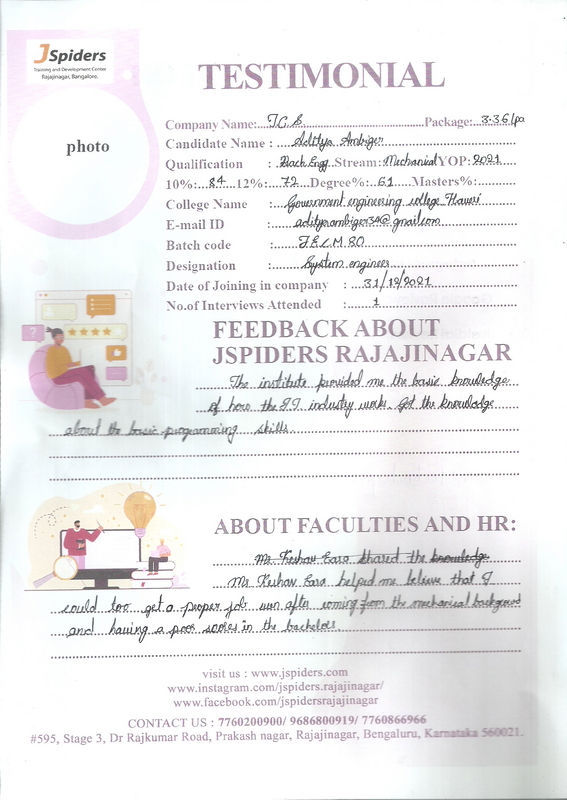 JSpiders
Training and Development Centre
Rajajinagar, Bangalore.
TESTIMONIAL
photo
Company Name:....T.C.S..........Package:..3.36 lpa
Candidate Name : ....Aditya Ambiger
Qualification : Bach Engg. Stream: Mechanical YOP: 2021
10%:...84...12%:...72...Degree%:..61.....Masters%:..........
College Name :....Government engineering college Haveri
E-mail ID :......adityaambiger34@gmail.com
Batch code :......JECM 80
Designation :........System engineer
Date of Joining in company : ...31/12/2021
No.of Interviews Attended :........1
FEEDBACK ABOUT
JSPIDERS RAJAJINAGAR
The institute provided me the basic knowledge
of how the IT industry work. Got the knowledge
about the basic programming skills.
ABOUT FACULTIES AND HR:
Mr. Keshav Sara shared the knowledge
Mr. Keshav Sara helped me believe that I
could too get a proper job even after coming from the mechanical background
and having a poor scores in the bachelors.
visit us : www.jspiders.com
www.instagram.com/jspiders.rajajinagar/
www.facebook.com/jspidersrajajinagar
CONTACT US : 7760200900/ 9686800919/ 7760866966
#595, Stage 3, Dr Rajkumar Road, Prakash nagar, Rajajinagar, Bengaluru, Karnataka 560021.